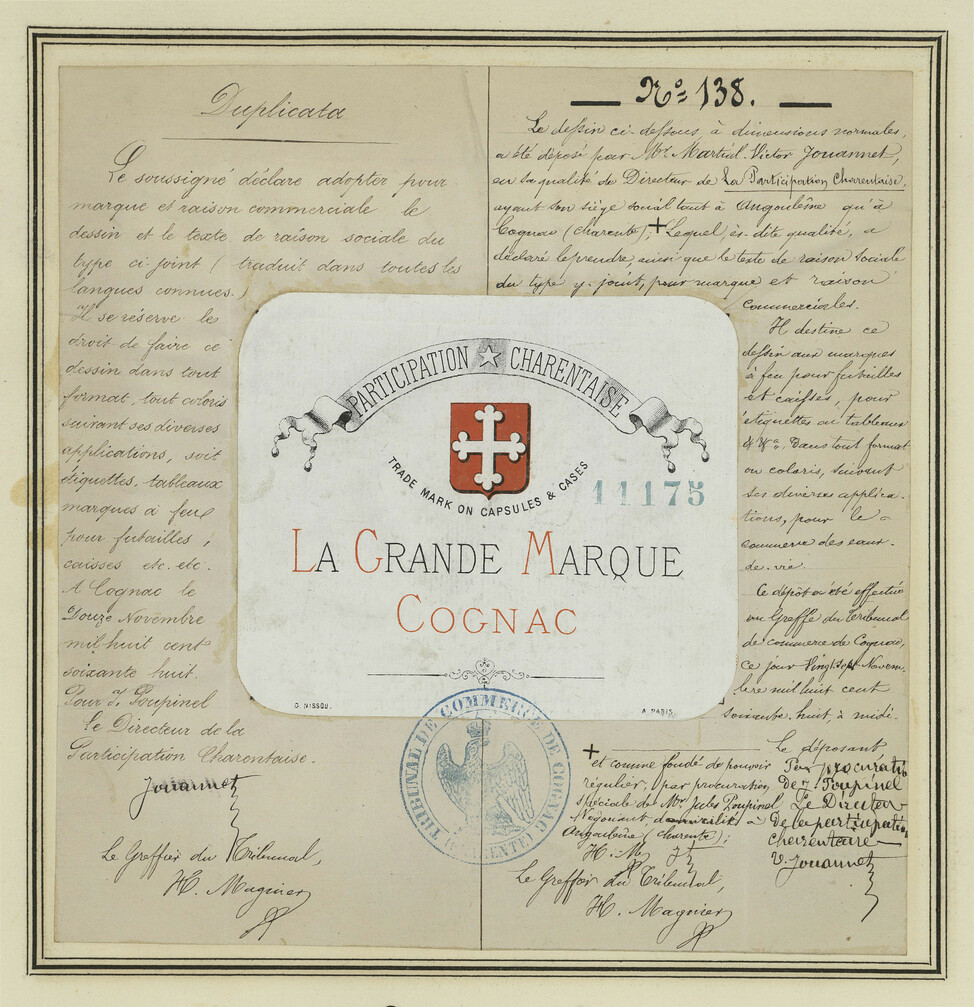 Duplicata
Le soussigné déclare adopter pour
marque et raison commerciale le
dessin et le texte de raison sociale du
type ci-joint (traduit dans toutes les
langues connues.)
Il se réserve le
droit de faire ce
dessin dans tout
format, tout coloris
suivant ses diverses
applications, soit
étiquettes, tableaux
marques à feu
pour futailles,
caisses etc. etc.
A Cognac le
Douze Novembre
mil huit cent
soixante huit.
Pour J. Poupinel
Le Directeur de la
Participation Charentaise.
Jouannet
Le Greffier du Tribunal,
H. Magnier
No 138.
Le dessin ci-dessous, à dimensions normales,
a été déposé par Mr. Martial-Victor Jouannet,
en sa qualité de Directeur de La Participation Charentaise,
ayant son siège social tant à Angoulême qu'à
Cognac (Charente), + Lequel, ès-dite qualité, a
déclaré le prendre, ainsi que le texte de raison sociale
du type y-joint, pour marque et raison
commerciales.
Il destine ce
dessin aux marques
à feu pour futailles
et caisses, pour
étiquettes ou tableaux
Dans tout format
ou coloris, suivant
ses diverses applica-
tions, pour le
commerce des eaux-
de-vie.
Ce dépôt a été effectué
au Greffe du Tribunal
de commerce de Cognac,
ce jour Vingt sept Novem-
bre mil huit cent
soixante-huit, à midi.
PARTICIPATION CHARENTAISE
TRADE MARK ON CAPSULES & CASES
11175
LA GRANDE MARQUE
COGNAC
G. NISSOU.
A PARIS.
TRIBUNAL DE COMMERCE DE COGNAC
(CHARENTE)
+ et comme fondé de pouvoir
régulier, par procuration
spéciale de Mr. Jules Poupinel
Négociant à
Angoulême (Charente);
H. M. J
Le Greffier du Tribunal,
H. Magnier
Le déposant
Par procuration
De J. Poupinel
Le Directeur
De la participation
charentaise
V. Jouannet